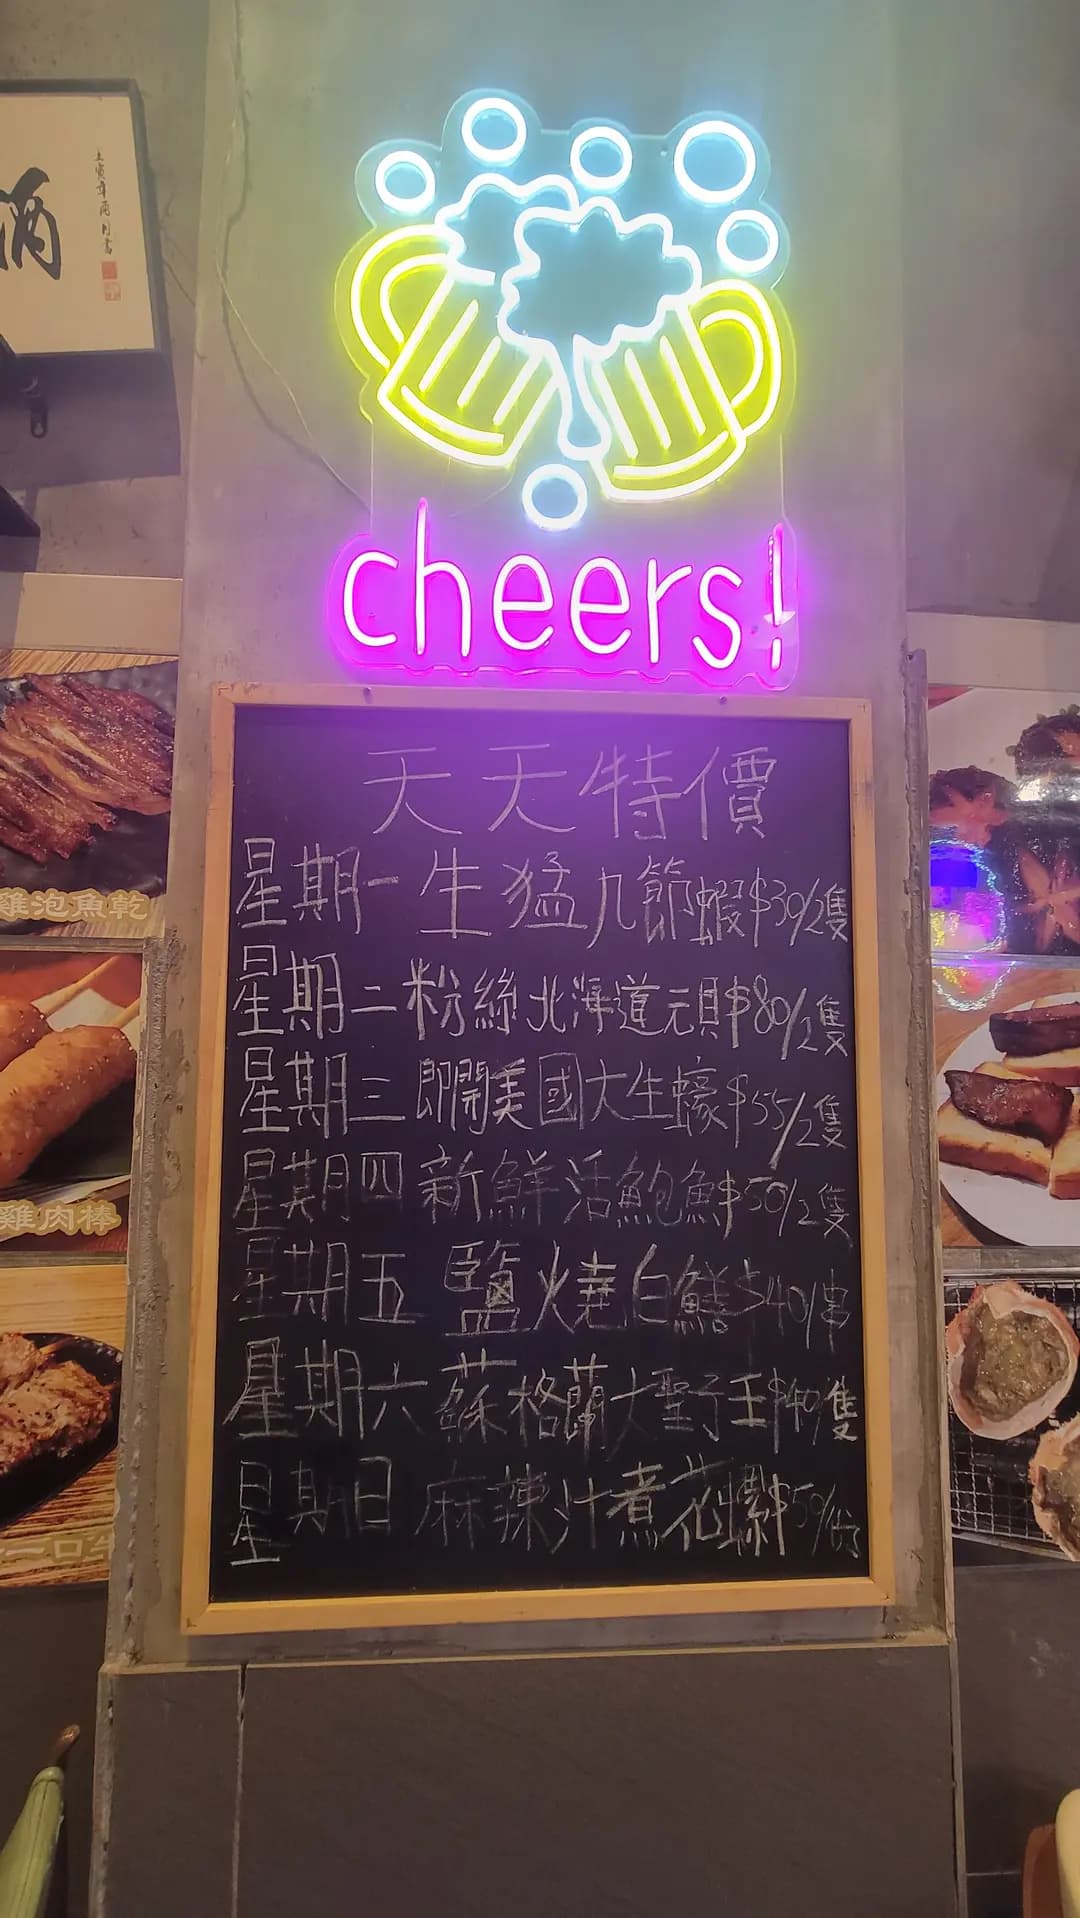 酒
cheers!
天天特價
星期一生猛九節蝦$39/2隻
星期二粉絲北海道元貝$80/2隻
星期三即開美國大生蠔$55/2隻
星期四新鮮活鮑魚$50/2隻
星期五鹽燒白鱔$40/串
星期六蘇格蘭大聖子王$40/隻
星期日麻辣汁煮花螺$50/份
雞泡魚乾
雞肉棒
一口牛